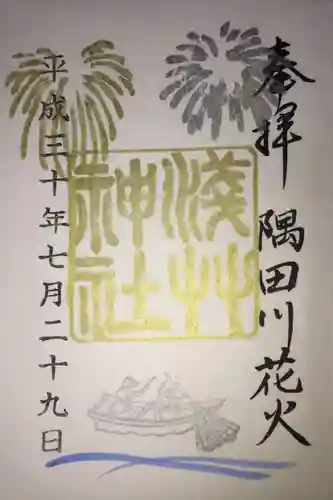 奉拝 隅田川花火
淺草
神社
平成三十年七月二十九日